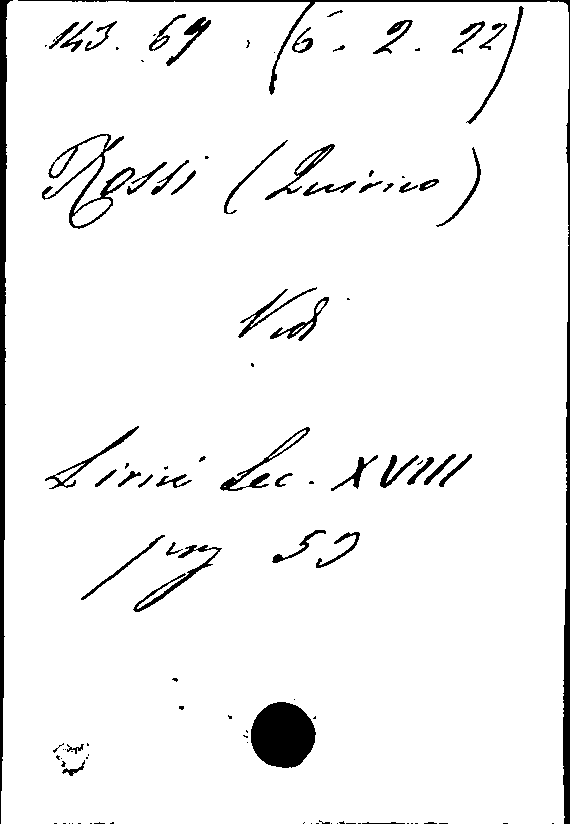 143. 59. (5. 2. 22)
Rossi (Quirico)
Vedi
Lirici Sec. XVIII
pag 59